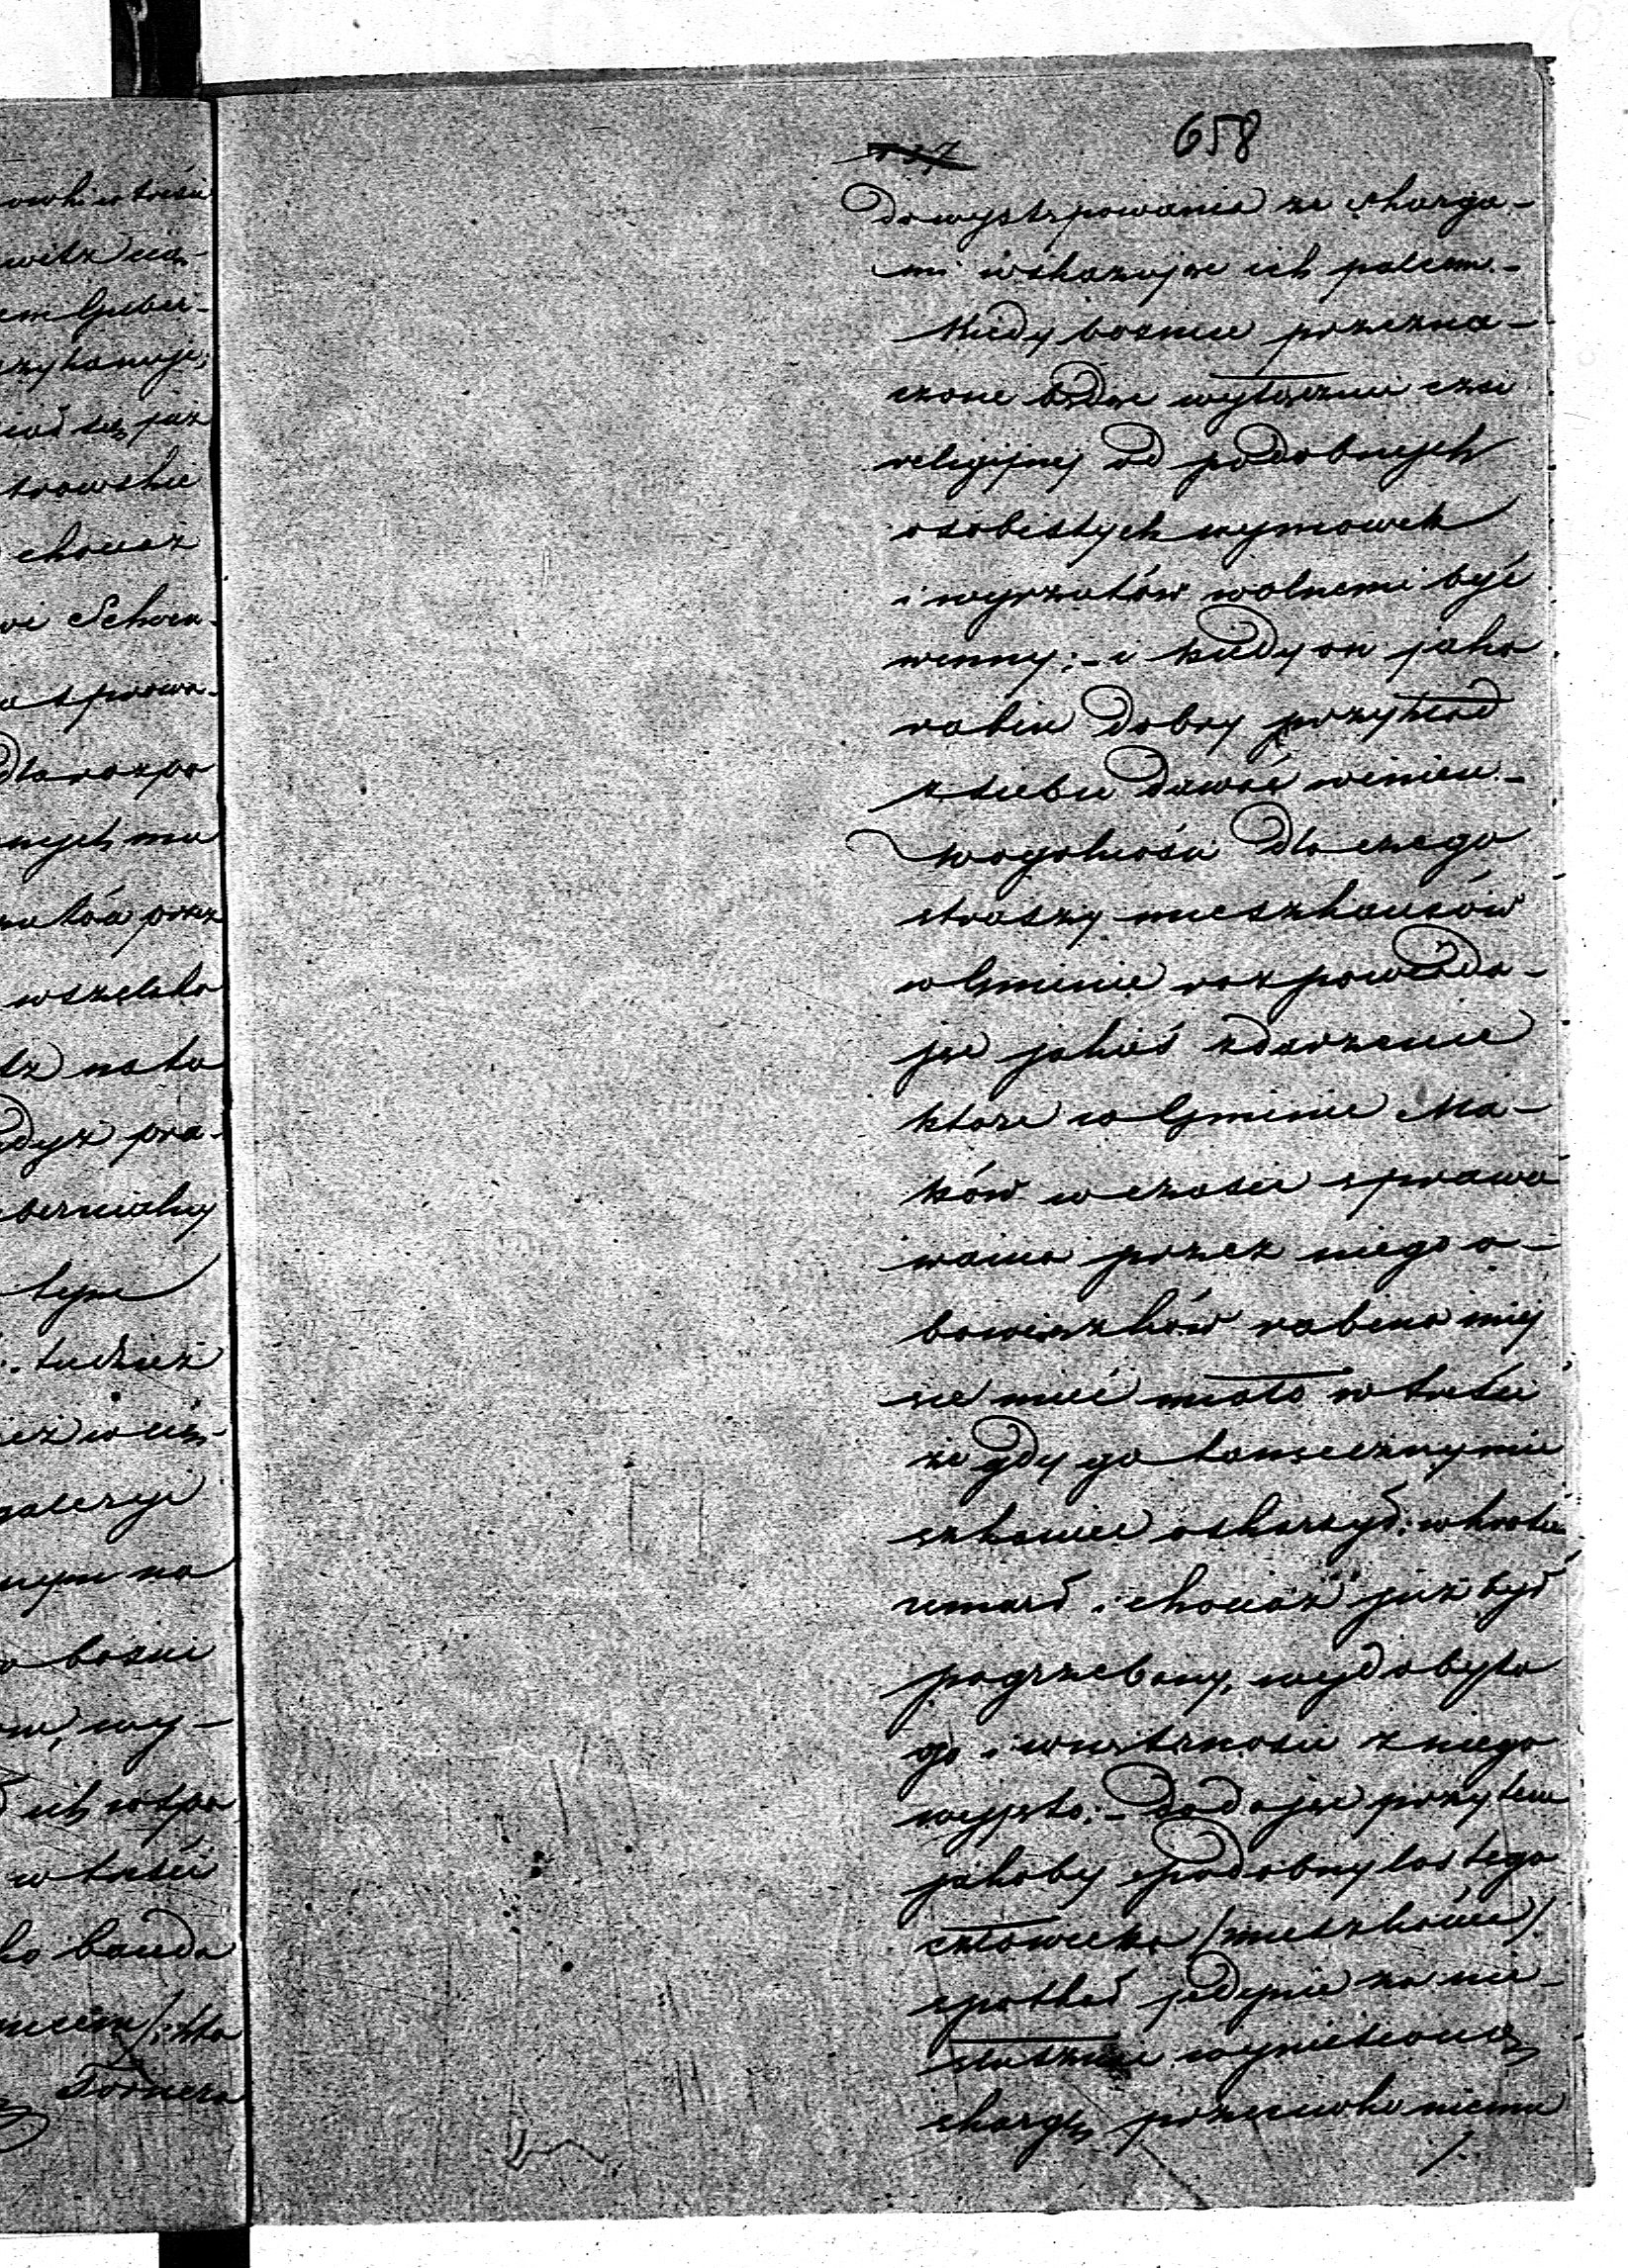 658
do wystąpowania ze skarga-
mi wskazując ich palcem.-
Kiedy boznice przezna-
czone będąc wyłącznie czci
religijnej od podobnych
osobistych wymowek
i wyrzutów wolnemi być
winny;- i kiedy on jako
rabin dobry przykład
z siebie dawać winien.-
w ogolności dla czego
straszy mieszkańców
w Gminie rozpowiada-
jąc jakieś zdarzenie
ktore w Gminie Ma-
ków w czasie sprawo
wania przez niego o-
bowiązków rabina miej
sce mieć miało w treści
że gdy go tameczny mie
szkaniec oskarzył: wkrotce
umarł i chociaż już był
pogrzebany, wydobyto
go i wnętrzności z niego
wyjęto;- dodając przytem
jakoby podobny los tego
człowieka /mieszkańca/
spotkał jedynie za nie-
słuszne wyniesioną
skargę przeciwko niemu
/.
owko w treści
em Guber-
trowskie
chociaż
wi Schwa-
a sprowa-
dla rozpo
nych ma
przez
wszelako
na to
gdyż pra-
bernialny
tym
tudzież
galeryi
nym na
bożni
wy-
w treści
ko banda
Tornera